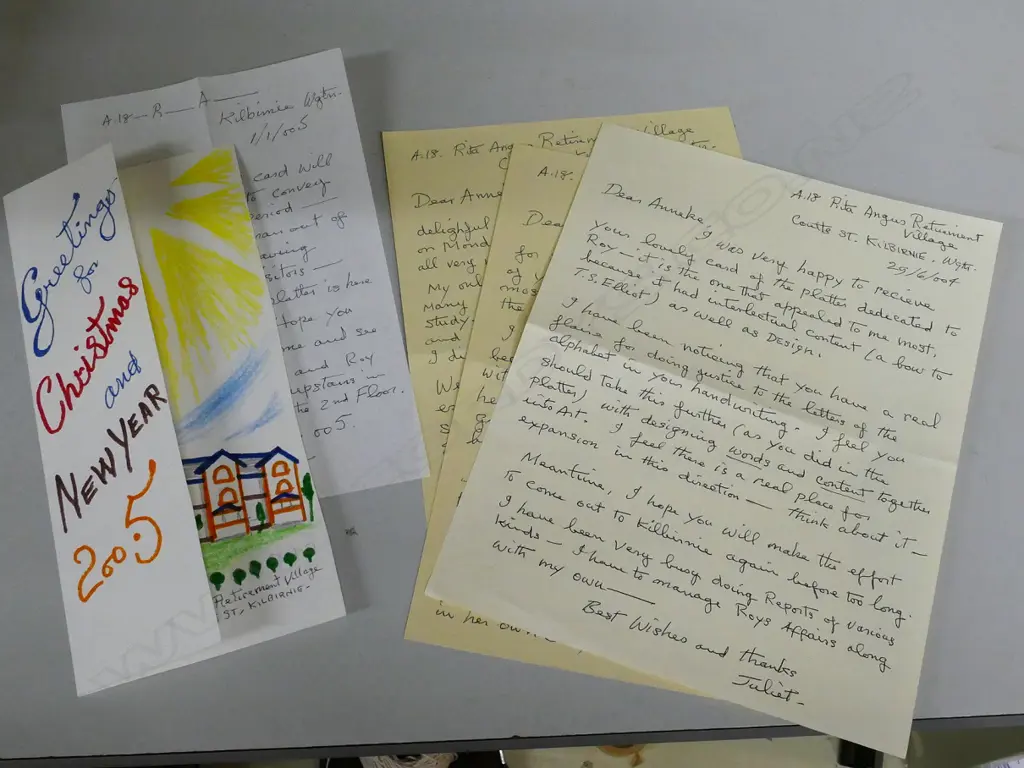 A.18. R A
Kilbirnie Wgtn.
1/1/005
card will
to convey
period
ran out of
drawing
visitors
platter is here
Hope you
me and see
and Roy
upstairs in
the 2nd Floor.
005.
Greetings
for
Christmas
and
NEW YEAR
2005
Retirement Village
ST, KILBIRNIE.
A.18. Rita Angus Retirement Village
Dear Anneke
delightful
on Mond
all very
My
many
study.
and
I di
We
in her own
A.18.
Dea
for
of
most
the
I
be
wit
he
A.18 Rita Angus Retirement
Village
Coutts ST. KILBIRNIE. Wgtn.
29/6/004
Dear Anneke,
I was very happy to recieve
your lovely card of the platter dedicated to
Roy — it is the one that appealed to me most,
because it had intellectual content (a bow to
T.S. Elliot) as well as DESIGN.
I have been noticing that you have a real
flaire for doing justice to the letters of the
alphabet in your handwriting. I feel you
should take this further (as you did in the
platter) with designing words and content together
into Art. I feel there is a real place for
expansion in this direction — think about it —
Meantime, I hope you will make the effort
to come out to Kilbirnie again before too long.
I have been very busy doing Reports of various
kinds — I have to manage Roys Affairs along
with my own —
Best Wishes and thanks
Juliet —